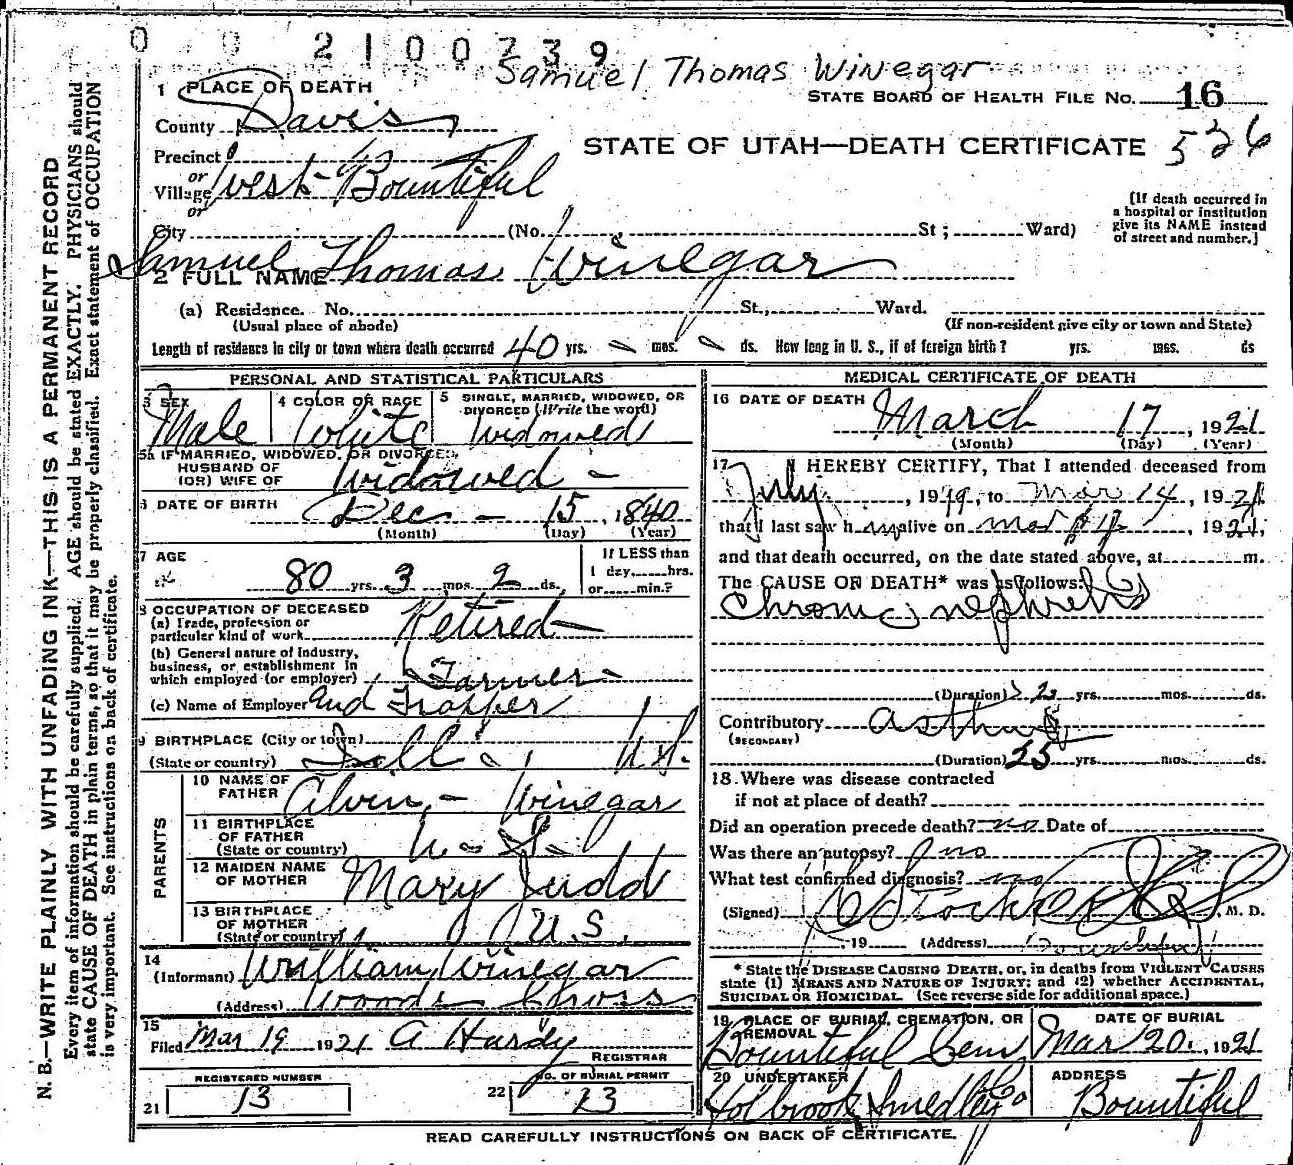 0 0 2 1 0 0 7 3 9
Samuel Thomas Winegar
1 PLACE OF DEATH
STATE BOARD OF HEALTH FILE No. 16
County Davis
STATE OF UTAH—DEATH CERTIFICATE 526
Precinct
or
Village West Bountiful
or
City (No. St; Ward)
[If death occurred in
a hospital or institution
give its NAME instead
of street and number.]
2 FULL NAME Samuel Thomas Winegar
(a) Residence. No. St., Ward.
(Usual place of abode) (If non-resident give city or town and State)
Length of residence in city or town where death occurred 40 yrs. – mos. – ds. How long in U. S., if of foreign birth? yrs. mos. ds
PERSONAL AND STATISTICAL PARTICULARS
3 SEX Male
4 COLOR OR RACE White
5 SINGLE, MARRIED, WIDOWED, OR
DIVORCED (Write the word)
Widowed
5a IF MARRIED, WIDOWED, OR DIVORCED
HUSBAND OF
(OR) WIFE OF Widowed –
6 DATE OF BIRTH Dec – 15, 1840
(Month) (Day) (Year)
7 AGE
80 yrs. 3 mos. 2 ds.
If LESS than
1 day, hrs.
or min.?
8 OCCUPATION OF DECEASED
(a) Trade, profession or
particular kind of work Retired –
(b) General nature of Industry,
business, or establishment in
which employed (or employer) Farmer –
(c) Name of Employer And Trapper
9 BIRTHPLACE (City or town)
(State or country) Ill U.S.
PARENTS
10 NAME OF
FATHER Alvin – Winegar
11 BIRTHPLACE
OF FATHER
(State or country) U. S.
12 MAIDEN NAME
OF MOTHER Mary Judd
13 BIRTHPLACE
OF MOTHER
(State or country) U.S.
14
(Informant) William Winegar
(Address) Woods Cross
15
Filed Mar 19 1921 A Hardy
REGISTRAR
REGISTERED NUMBER
21 13
NO. OF BURIAL PERMIT
22 23
MEDICAL CERTIFICATE OF DEATH
16 DATE OF DEATH
March 17, 1921
(Month) (Day) (Year)
17 I HEREBY CERTIFY, That I attended deceased from
July, 1919, to Mar 14, 1921
that I last saw him alive on Mar, 1921,
and that death occurred, on the date stated above, at m.
The CAUSE OF DEATH* was as follows:
Chronic nephritis
(Duration) 2 yrs. mos. ds.
Contributory asthma
(SECONDARY)
(Duration) 25 yrs. mos. ds.
18 Where was disease contracted
if not at place of death?
Did an operation precede death? no Date of
Was there an autopsy? no
What test confirmed diagnosis? no
(Signed) , M. D.
, 19 (Address) Bountiful
* State the DISEASE CAUSING DEATH, or, in deaths from VIOLENT CAUSES
state (1) MEANS AND NATURE OF INJURY; and (2) whether ACCIDENTAL,
SUICIDAL OR HOMICIDAL. (See reverse side for additional space.)
19 PLACE OF BURIAL, CREMATION, OR
REMOVAL
Bountiful Cem
DATE OF BURIAL
Mar 20, 1921
20 UNDERTAKER
Holbrook Smedley Co
ADDRESS
Bountiful
READ CAREFULLY INSTRUCTIONS ON BACK OF CERTIFICATE.
N. B.—WRITE PLAINLY WITH UNFADING INK—THIS IS A PERMANENT RECORD
Every item of information should be carefully supplied. AGE should be stated EXACTLY. PHYSICIANS should
state CAUSE OF DEATH in plain terms, so that it may be properly classified. Exact statement of OCCUPATION
is very important. See instructions on back of certificate.